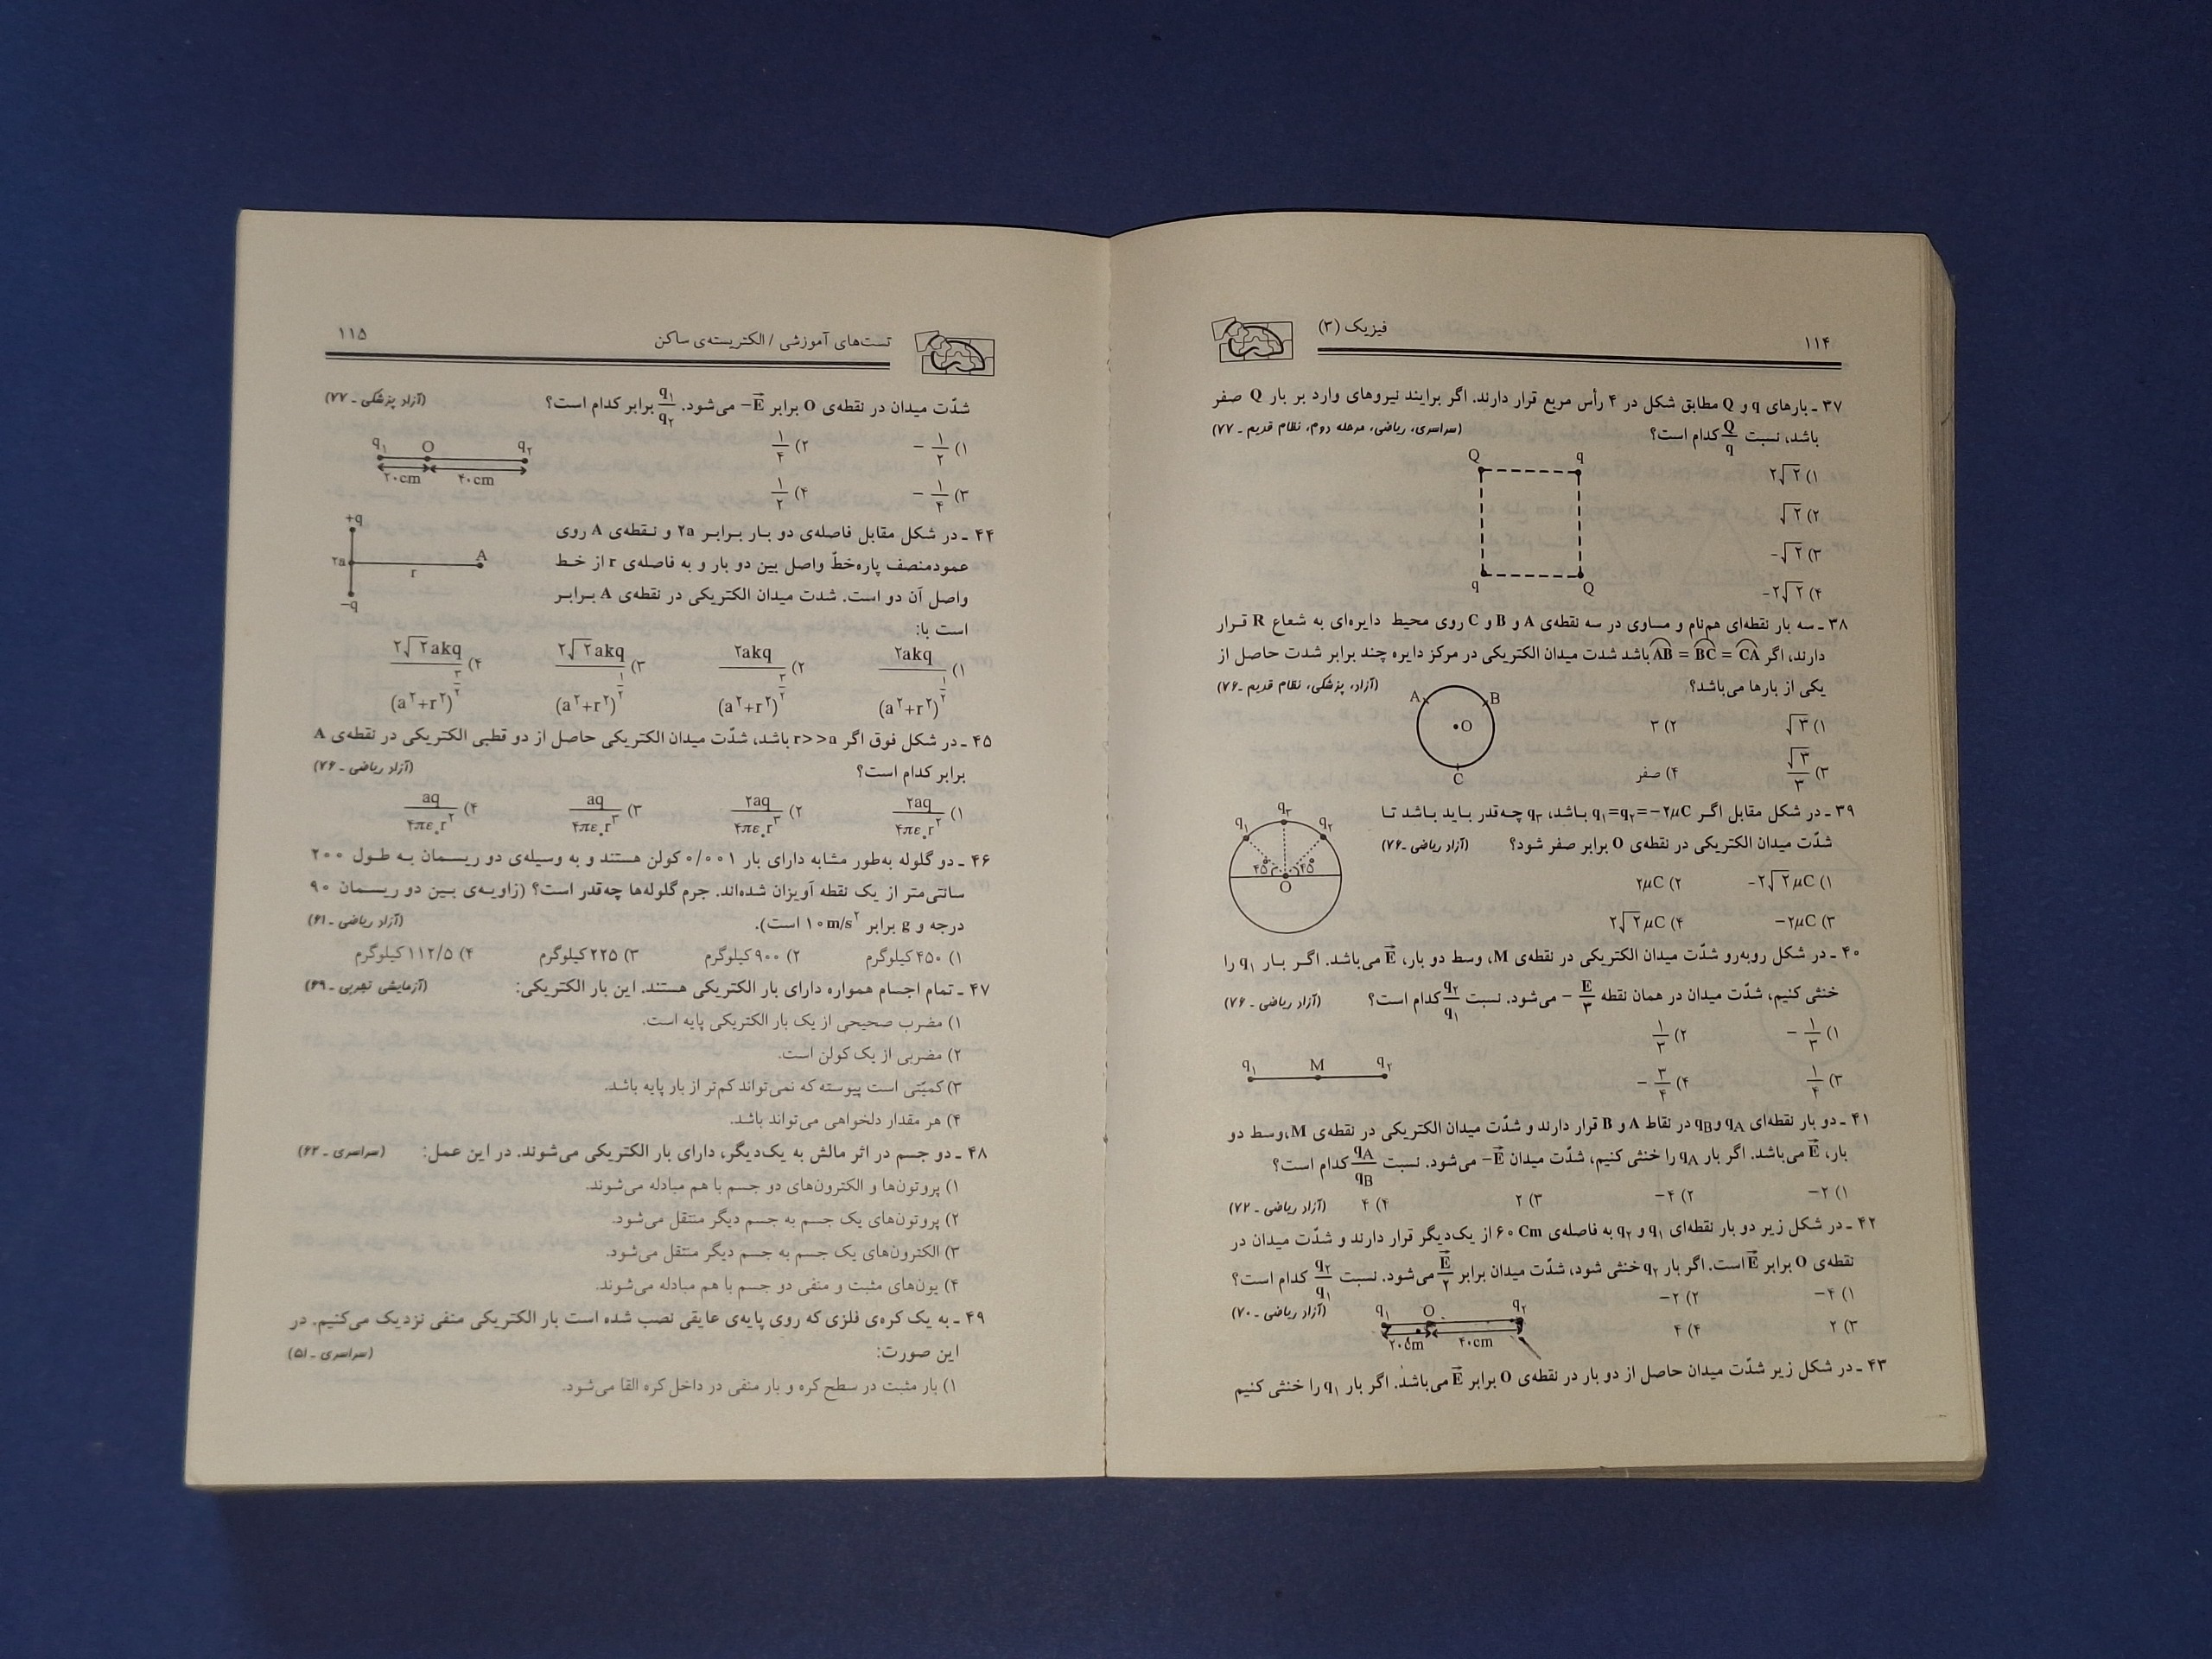 ۱۱۴
فیزیک (۳)
۳۷ ـ بارهای q و Q مطابق شکل در ۴ رأس مربع قرار دارند. اگر برایند نیروهای وارد بر بار Q صفر
باشد، نسبت Q/q کدام است؟ (سراسری، ریاضی، مرحله دوم، نظام قدیم ـ ۷۷)
۱) ۲√۲
۲) √۲
۳) -√۲
۴) -۲√۲
Q q
q Q
۳۸ ـ سه بار نقطه‌ای هم‌نام و مساوی در سه نقطه‌ی A و B و C روی محیط دایره‌ای به شعاع R قرار
دارند، اگر AB = BC = CA باشد شدت میدان الکتریکی در مرکز دایره چند برابر شدت حاصل از
یکی از بارها می‌باشد؟ (آزاد، پزشکی، نظام قدیم ـ ۷۶)
۱) √۳ ۲) ۳
۳) √۳/۳ ۴) صفر
A B
O
C
۳۹ ـ در شکل مقابل اگر q₁=q₂=-۲μC باشد، q₃ چه‌قدر باید باشد تا
شدّت میدان الکتریکی در نقطه‌ی O برابر صفر شود؟ (آزاد ریاضی ـ ۷۶)
۱) -۲√۲ μC ۲) ۲μC
۳) -۲μC ۴) ۲√۲ μC
q₁ q₃ q₂
۴۵° ۴۵°
O
۴۰ ـ در شکل روبه‌رو شدّت میدان الکتریکی در نقطه‌ی M، وسط دو بار، E⃗ می‌باشد. اگر بار q₁ را
خنثی کنیم، شدّت میدان در همان نقطه -E⃗/۳ می‌شود. نسبت q₂/q₁ کدام است؟ (آزاد ریاضی ـ ۷۶)
۱) -۱/۳ ۲) ۱/۳
۳) ۱/۴ ۴) -۳/۴
q₁ M q₂
۴۱ ـ دو بار نقطه‌ای qA و qB در نقاط A و B قرار دارند و شدّت میدان الکتریکی در نقطه‌ی M، وسط دو
بار، E⃗ می‌باشد. اگر بار qA را خنثی کنیم، شدّت میدان -E⃗ می‌شود. نسبت qA/qB کدام است؟
۱) -۲ ۲) -۴ ۳) ۲ ۴) ۴ (آزاد ریاضی ـ ۷۲)
۴۲ ـ در شکل زیر دو بار نقطه‌ای q₁ و q₂ به فاصله‌ی ۶۰ Cm از یک‌دیگر قرار دارند و شدّت میدان در
نقطه‌ی O برابر E⃗ است. اگر بار q₂ خنثی شود، شدّت میدان برابر E⃗/۲ می‌شود. نسبت q₂/q₁ کدام است؟
۱) -۴ ۲) -۲ (آزاد ریاضی ـ ۷۰)
۳) ۲ ۴) ۴
q₁ O q₂
۲۰cm ۴۰cm
۴۳ ـ در شکل زیر شدّت میدان حاصل از دو بار در نقطه‌ی O برابر E⃗ می‌باشد. اگر بار q₁ را خنثی کنیم
تست‌های آموزشی / الکتریسته‌ی ساکن
۱۱۵
شدّت میدان در نقطه‌ی O برابر -E⃗ می‌شود. q₁/q₂ برابر کدام است؟ (آزاد پزشکی ـ ۷۷)
۱) -۱/۲ ۲) ۱/۴
۳) -۱/۴ ۴) ۱/۲
q₁ O q₂
۲۰cm ۴۰cm
۴۴ ـ در شکل مقابل فاصله‌ی دو بار برابر ۲a و نقطه‌ی A روی
عمودمنصف پاره‌خطّ واصل بین دو بار و به فاصله‌ی r از خط
واصل آن دو است. شدت میدان الکتریکی در نقطه‌ی A برابر
است با:
+q
۲a r A
-q
۱) ۲akq/(a²+r²)^(۱/۲) ۲) ۲akq/(a²+r²)^(۳/۲) ۳) ۲√۲akq/(a²+r²)^(۱/۲) ۴) ۲√۲akq/(a²+r²)^(۳/۲)
۴۵ ـ در شکل فوق اگر r>>a باشد، شدّت میدان الکتریکی حاصل از دو قطبی الکتریکی در نقطه‌ی A
برابر کدام است؟ (آزاد ریاضی ـ ۷۶)
۱) ۲aq/۴πε₀r² ۲) ۲aq/۴πε₀r³ ۳) aq/۴πε₀r³ ۴) aq/۴πε₀r²
۴۶ ـ دو گلوله به‌طور مشابه دارای بار ۰/۰۰۱ کولن هستند و به وسیله‌ی دو ریسمان به طول ۲۰۰
سانتی‌متر از یک نقطه آویزان شده‌اند. جرم گلوله‌ها چه‌قدر است؟ (زاویه‌ی بین دو ریسمان ۹۰
درجه و g برابر ۱۰m/s² است). (آزاد ریاضی ـ ۶۱)
۱) ۴۵۰ کیلوگرم ۲) ۹۰۰ کیلوگرم ۳) ۲۲۵ کیلوگرم ۴) ۱۱۲/۵ کیلوگرم
۴۷ ـ تمام اجسام همواره دارای بار الکتریکی هستند. این بار الکتریکی: (آزمایشی تجربی ـ ۶۹)
۱) مضرب صحیحی از یک بار الکتریکی پایه است.
۲) مضربی از یک کولن است.
۳) کمیّتی است پیوسته که نمی‌تواند کم‌تر از بار پایه باشد.
۴) هر مقدار دلخواهی می‌تواند باشد.
۴۸ ـ دو جسم در اثر مالش به یک‌دیگر، دارای بار الکتریکی می‌شوند. در این عمل: (سراسری ـ ۶۲)
۱) پروتون‌ها و الکترون‌های دو جسم با هم مبادله می‌شوند.
۲) پروتون‌های یک جسم به جسم دیگر منتقل می‌شود.
۳) الکترون‌های یک جسم به جسم دیگر منتقل می‌شود.
۴) یون‌های مثبت و منفی دو جسم با هم مبادله می‌شوند.
۴۹ ـ به یک کره‌ی فلزی که روی پایه‌ی عایقی نصب شده است بار الکتریکی منفی نزدیک می‌کنیم. در
این صورت: (سراسری ـ ۵۱)
۱) بار مثبت در سطح کره و بار منفی در داخل کره القا می‌شود.